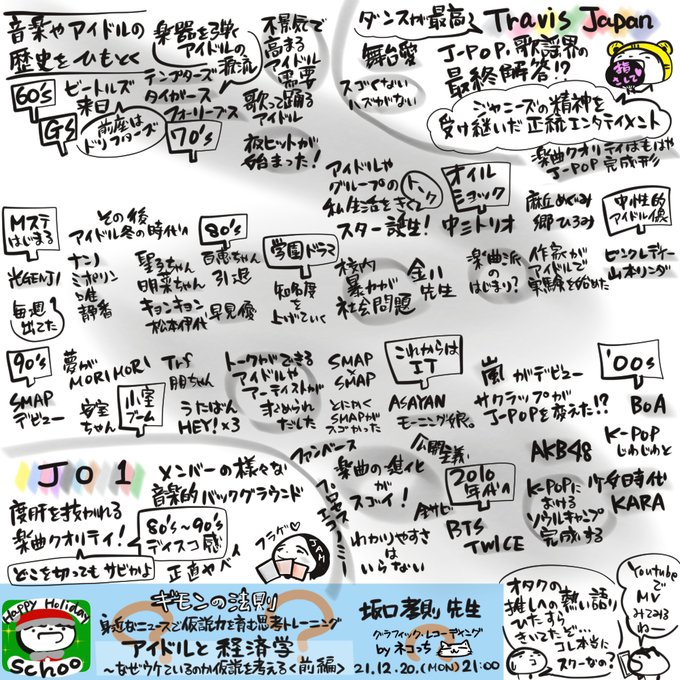 音楽やアイドルの
歴史をひもとく
楽器を弾く
アイドルの源流
不景気で
高まる
アイドル
需要
60's
ビートルズ
来日
テンプターズ
タイガース
フォーリーブス
GS
前座は
ドリフターズ
70's
歌って踊る
アイドル
板ヒットが
始まった!
ダンスが最高
Travis Japan
舞台愛
スゴくない
ハズがない
J-POP、歌謡界の
最終解答!?
ジャニーズの精神を
受け継いだ正統エンタテイメント
楽曲クオリティはもはや
J-POP完成形
アイドルや
グループの
私生活をきく
トーク
スター誕生!
オイル
ショック
中三トリオ
麻丘めぐみ
郷ひろみ
中性的
アイドル像
Mステ
はじまる
光GENJI
毎週
出てた
その後
アイドル冬の時代へ
ナンノ
ミポリン
唯
静香
80's
聖子ちゃん
明菜ちゃん
キョンキョン
松本伊代
百恵ちゃん
引退
早見優
学園ドラマ
知名度
を
上げていく
校内
暴力が
社会問題
金八
先生
楽曲派
の
はじまり?
作家が
アイドルで
実験を始めた
ピンクレディー
山本リンダ
90's
SMAP
デビュー
夢が
MORI MORI
安室
ちゃん
小室
ブーム
Trf
朋ちゃん
うたばん
HEY!×3
トークができる
アイドルや
アーティストが
求められ
だした
SMAP
×
SMAP
とにかく
SMAPが
スゴかった
これからは
IT
ASAYAN
モーニング娘。
嵐がデビュー
サクラップが
J-POPを変えた!?
'00s
BoA
K-POP
じわじわと
AKB48
少女時代
KARA
K-POPに
おける
ソウルキャンプ
完成する
JO1
メンバーの様々な
音楽的バックグラウンド
度肝を抜かれる
楽曲クオリティ!
80's~90's
ディスコ感
どこを切ってもサビかよ
正直ヤベイ
フラゲ♡
ファンベース
プロセスエコノミー
楽曲の進化
が
スゴイ!
公開主義
わかりやすさ
は
いらない
全サビ
2010
年代へ
BTS
TWICE
Happy Holiday
Schoo
ギモンの法則
身近なニュースで仮説力を育む思考トレーニング
アイドルと経済学
~なぜウケているのか仮説を考える<前編>
坂口孝則 先生
グラフィックレコーディング
by ネコっち
21.12.20.(MON)21:00
オタクの
推しへの熱い語り
ひたすら
きいてたど…
コレ本当に
スクーなの?
Youtube
で
MV
みてみる
ね